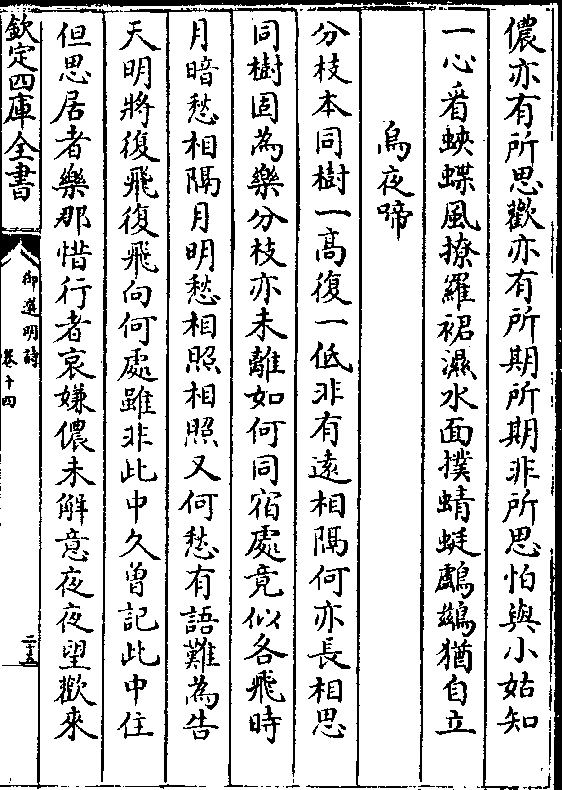 儂亦有所思歡亦有所期所期非所思怕與小姑知
一心看蛺蝶風撩羅裙濕水面撲蜻蜓鸕鷀猶自立
烏夜啼
分枝本同樹一高復一低非有遠相隔何亦長相思
同樹固為樂分枝亦未離如何同宿處竟似各飛時
月暗愁相隔月明愁相照相照又何愁有語難為告
天明將復飛復飛向何處雖非此中久曾記此中住
但思居者樂那惜行者哀嫌儂未解意夜夜望歡來
欽定四庫全書
御選明詩
卷十四
二五